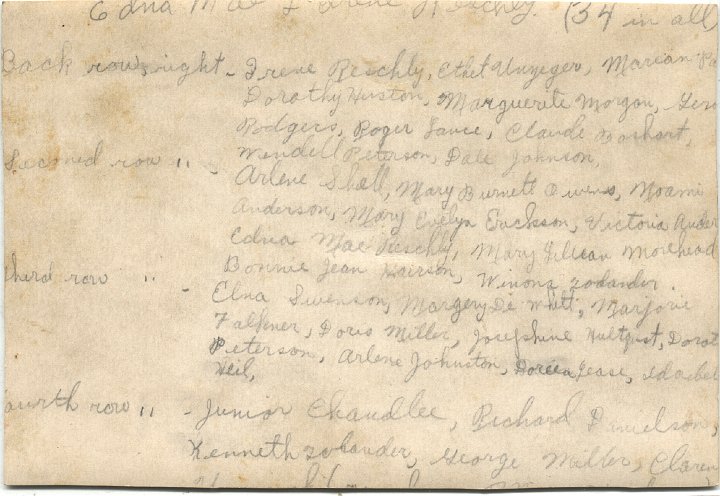 Edna Mae & Irene Reschly. (34 in all)
Back row, right - Irene Reschly, Ethel Unzeger, Marian
Dorothy Huston, Marguerite Morgan,
Rodgers, Roger Lauce, Claude Boshart,
Seconed row " - Wendell Peterson, Dale Johnson,
Arlene Shall, Mary Burnett Owens, Noami
Anderson, Mary Evelyn Erickson, Victoria Ander
Edna Mae Reschly, Mary Gillean Morehead
Bonnie Jean Hairson, Winona Zolander.
third row " - Elna Swenson, Margery De Witt, Marjorie
Falkner, Doris Miller, Josephine Hultquist, Dorot
Peterson, Arlene Johnston, Doreen Lease,
Heil,
ourth row " - Junior Chandlee, Richard Danielson,
Kenneth Zolander, George Miller, Claren